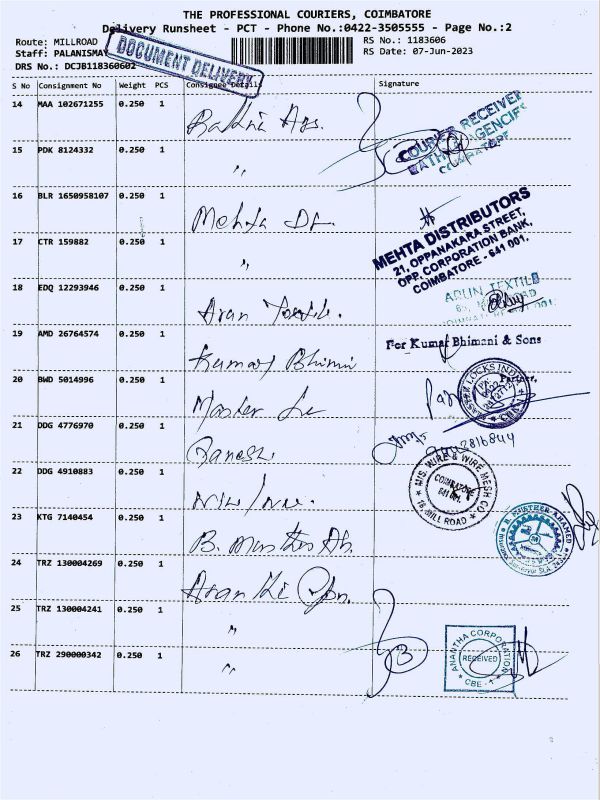 THE PROFESSIONAL COURIERS, COIMBATORE
Delivery Runsheet - PCT - Phone No.:0422-3505555 - Page No.:2
Route: MILLROAD
RS No.: 1183606
Staff: PALANISMAY
RS Date: 07-Jun-2023
DRS No.: DCJB118360602
DOCUMENT DELIVERY
S No Consignment No Weight PCS Consignee Details Signature
14 MAA 102671255 0.250 1
COURIER RECEIVED
COIMBATORE
15 PDK 8124332 0.250 1 "
16 BLR 1650958107 0.250 1 Mehta
MEHTA DISTRIBUTORS
21, OPPANAKARA STREET,
OPP. CORPORATION BANK,
COIMBATORE - 641 001.
17 CTR 159882 0.250 1 "
18 EDQ 12293946 0.250 1 Arun Textile.
ARUN TEXTILE
19 AMD 26764574 0.250 1 Kumar Bhimani
For Kumar Bhimani & Sons
Partner.
20 BWD 5014996 0.250 1 Master
21 DDG 4776970 0.250 1 Ganesh
22 DDG 4910883 0.250 1
M/S. WIRE & WIRE MESH CO
COIMBATORE
641 001.
18 MILL ROAD
23 KTG 7140454 0.250 1
24 TRZ 130004269 0.250 1
25 TRZ 130004241 0.250 1 "
26 TRZ 290000342 0.250 1 "
ANANTHA CORPORATION
RECEIVED
CBE - 1